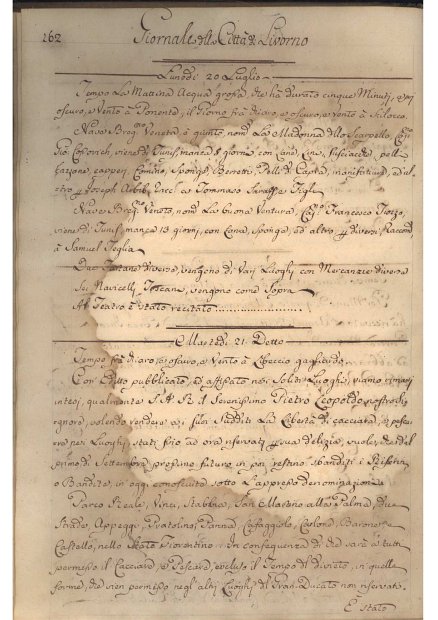 262 Giornale della Città di Livorno
Lunedì 20 Luglio
Tempo La Mattina Acqua grossa che hà durato cinque Minuti, e poi
oscuro, e Vento à Ponente, il Giorno frà chiaro, e oscuro, e vento à Scilocco
Nave Brig.ᵒ Veneta à giunto, nom.ᵗᵃ La Madonna dello Scarpello, Cap.ⁿ
Gio. viene di Tunis, manca 8 giorni, con Lana, Cera, pelli
Comino, Sponge, Berretti, Pelli di Capra, manifatture, ed
Joseph Arbib, Errera e Tommaso
Nave Brig.ᵒ Veneto, nom.ᵗᵒ La buona Ventura, Cap.ⁿ Francesco Tiozzo,
viene di Tunis, manca 13 giorni, con Lana, Sponge, ed altro p diversi Raccom.
à Samuel Teglia
Due diverse, vengono di Varj Luoghi con Mercanzie diverse
Sei Navicelli Toscani, vengono come Sopra
Al Teatro è stato recitato
Martedì 21 Detto
Tempo frà chiaro, e oscuro, e Vento à Libeccio gagliardo
Con Editto pubblicato, ed affissato nei Soliti Luoghi, siamo rimasi
intesi, qualmente S A R il Serenissimo Pietro Leopoldo nostro Si
gnore, volendo rendere ai suoi Sudditi La Libertà di cacciare, e pescare
nei Luoghi stati fino ad ora riservati p sua delizia, vuole, che dal
primo di Settembre prossimo futuro in poi restino sbanditi i
o Bandite, in oggi conosciute sotto L'appresso denominazione
Parco Reale, Vinci, Stabbia, San Martino alla Palma, due
Strade, Appeggi, Pratolino, Panna, Cafaggiolo, Baroncoli
Castello, nello Stato Fiorentino: In conseguenza di che sarà à tutti
permesso il Cacciare, e Pescare, escluso il Tempo del divieto, in quelle
forme, che vien permesso negl'altri Luoghi del Gran-Ducato non riservati
E stato